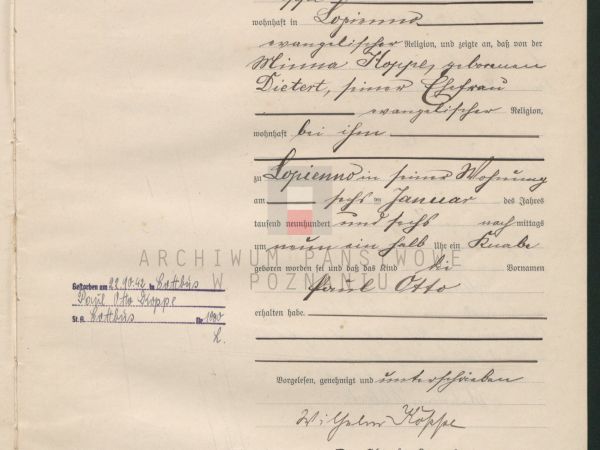 wohnhaft in Lopienno
evangelischer Religion, und zeigte an, daß von der
Minna Koppe, geborenen
Dietert, seiner Ehefrau
evangelischer Religion,
wohnhaft bei ihm
zu Lopienno in seiner Wohnung
am sechs ten Januar des Jahres
tausend neunhundert und sechs nach mittags
um neun ein halb Uhr ein Knabe
geboren worden sei und daß das Kind die Vornamen
Paul Otto
erhalten habe.
Vorgelesen, genehmigt und unterschrieben
Wilhelm Koppe
Gestorben am 22.10.42 in Cottbus
Paul Otto Koppe
St. A. Cottbus Nr.
ARCHIWUM PAŃSTWOWE
W POZNANIU